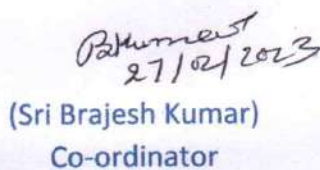 BKumar
27/02/2023
(Sri Brajesh Kumar)
Co-ordinator